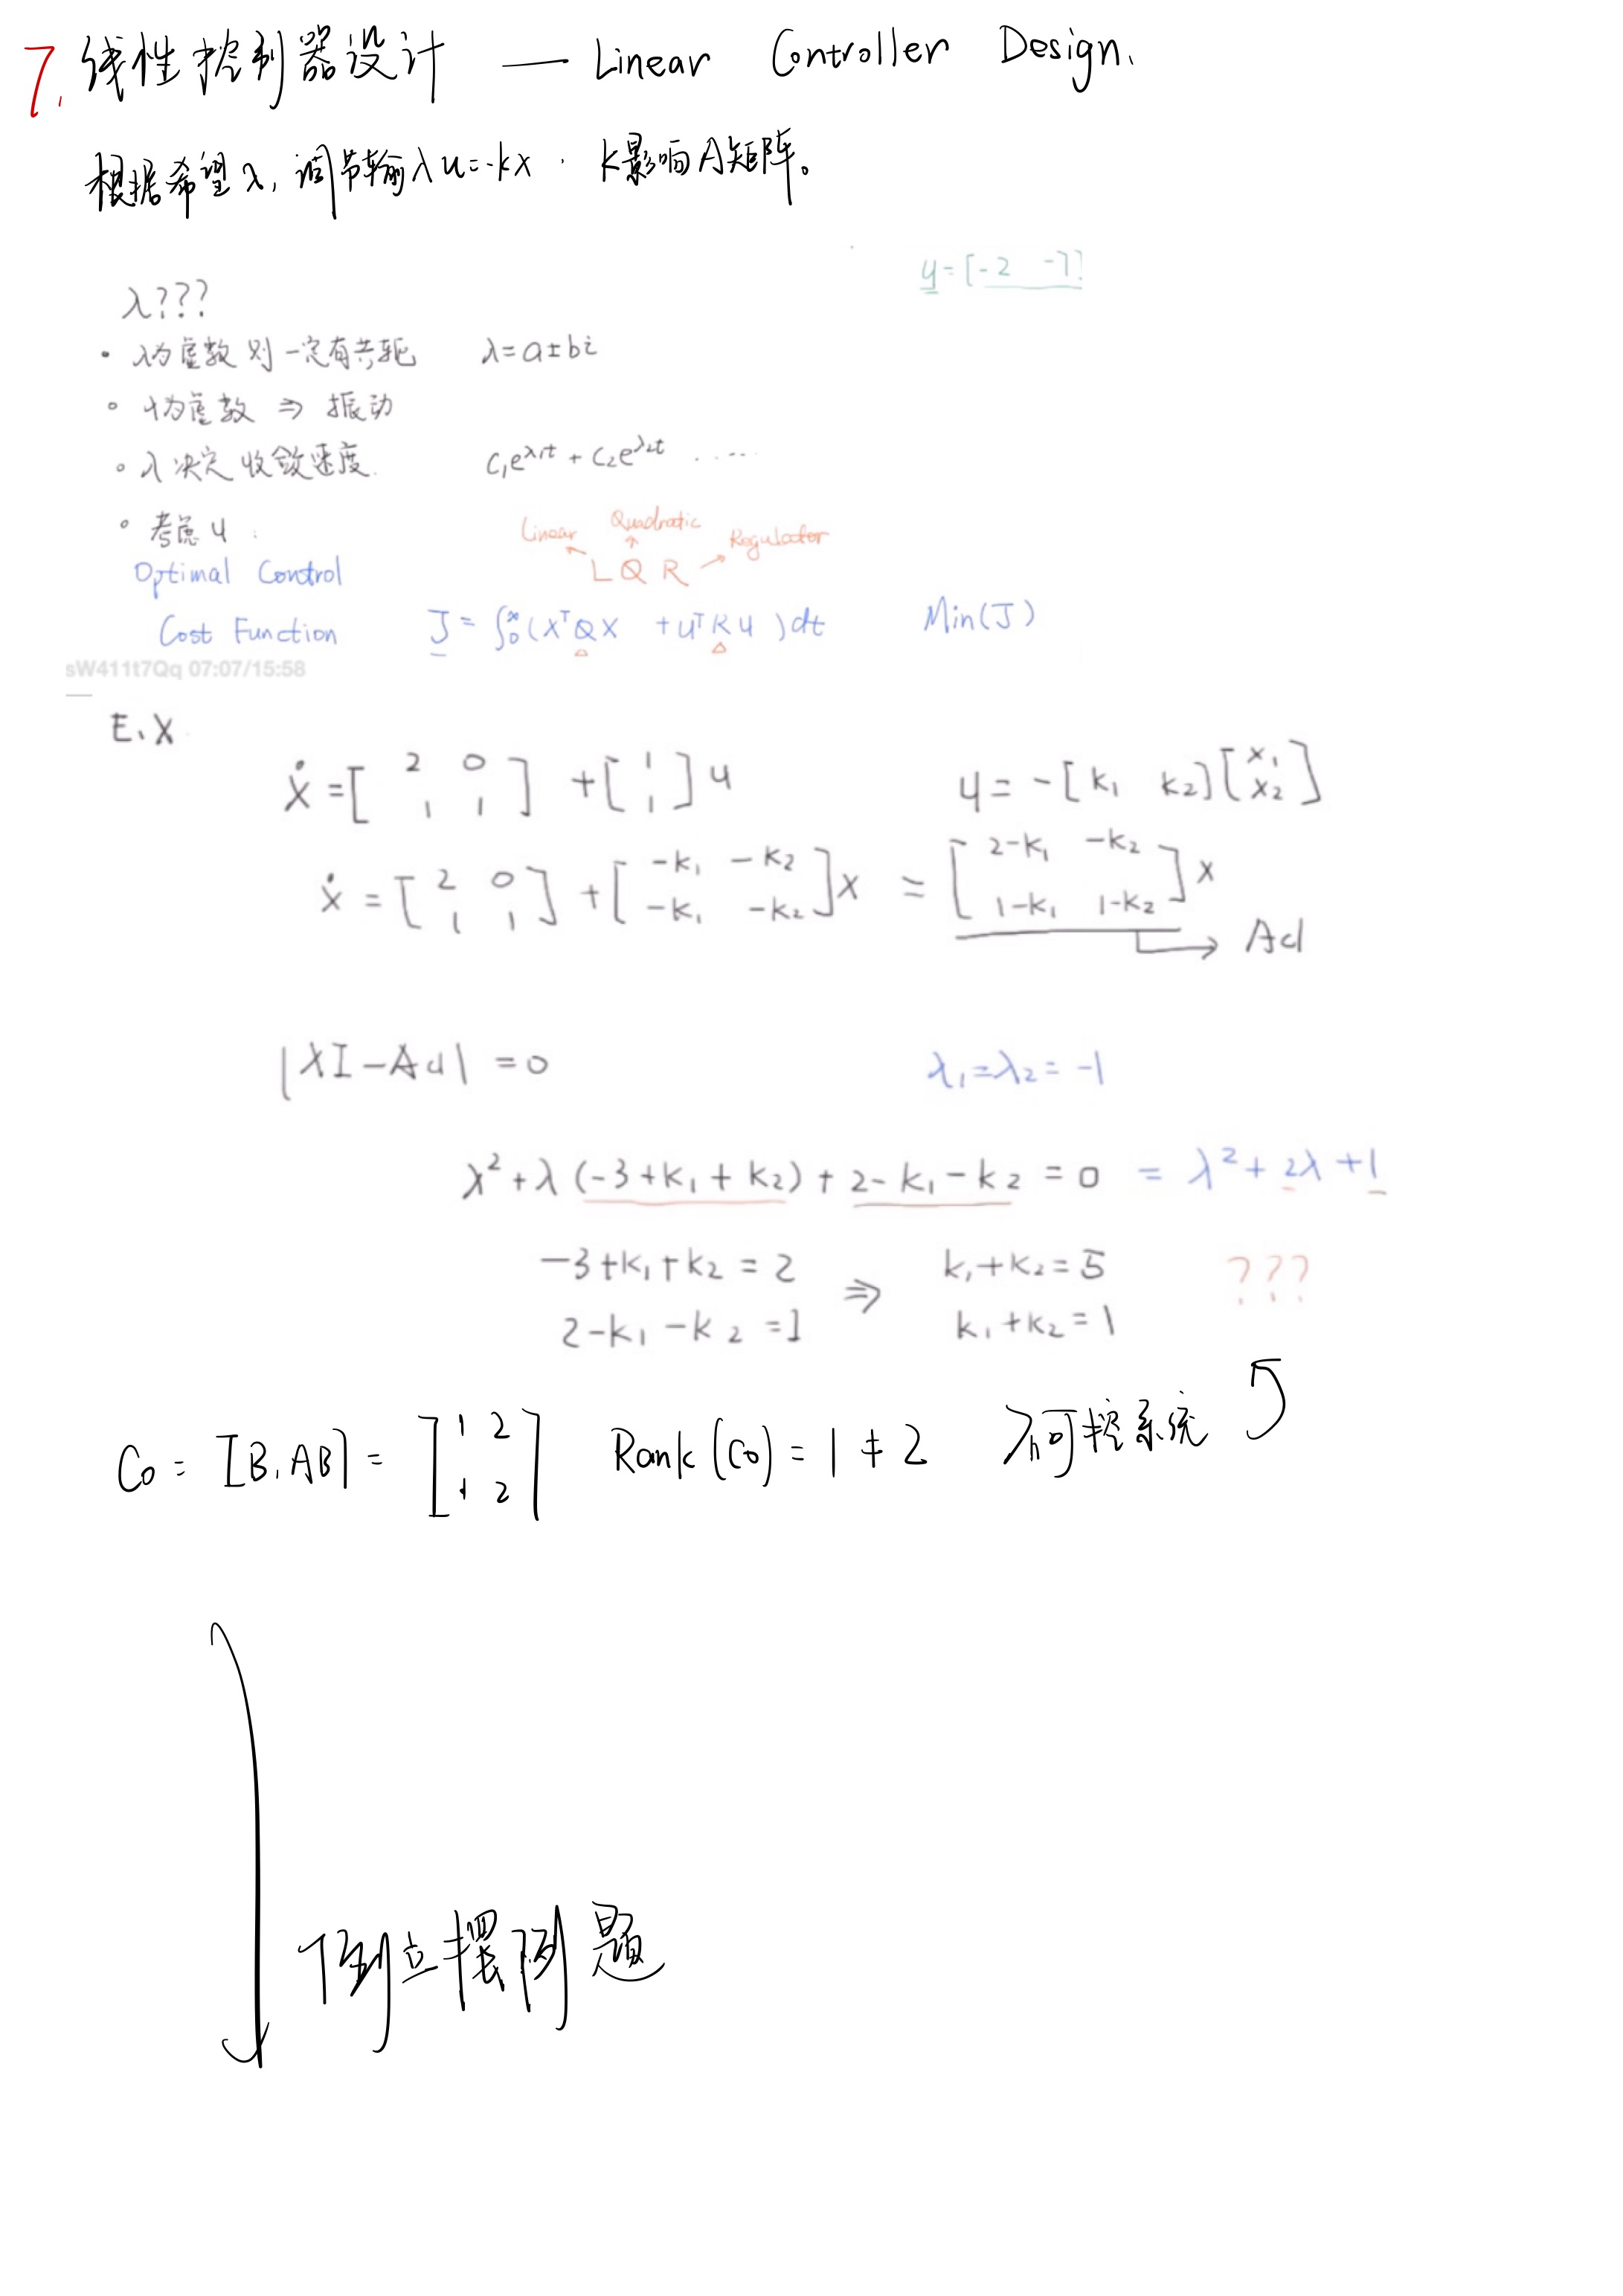 7. 线性控制器设计 — Linear Controller Design.
根据希望λ, 调节输入u=-kx. K影响A矩阵。
y=[-2 -7]
λ???
• λ为虚数则一定有共轭 λ=a±bi
• λ为虚数 ⇒ 振动
• λ决定收敛速度. C₁e^λ₁t + C₂e^λ₂t .....
• 考虑u.
Linear Quadratic Regulator
Optimal Control LQR
Cost Function J = ∫₀^∞ (xᵀQx + uᵀRu)dt Min(J)
sW411t7Qq 07:07/15:58
E.X
ẋ = [2 0; 1 1] + [1; 1]u u = -[k₁ k₂][x₁; x₂]
ẋ = [2 0; 1 1] + [-k₁ -k₂; -k₁ -k₂]x = [2-k₁ -k₂; 1-k₁ 1-k₂]x → Acl
|λI-Acl| = 0 λ₁=λ₂=-1
λ²+λ(-3+k₁+k₂)+2-k₁-k₂=0 = λ²+2λ+1
-3+k₁+k₂=2 ⇒ k₁+k₂=5 ???
2-k₁-k₂=1 k₁+k₂=1
Co = [B, AB] = [1 2; 1 2] Rank(Co) = 1 ≠ 2 不可控系统
倒立摆例题